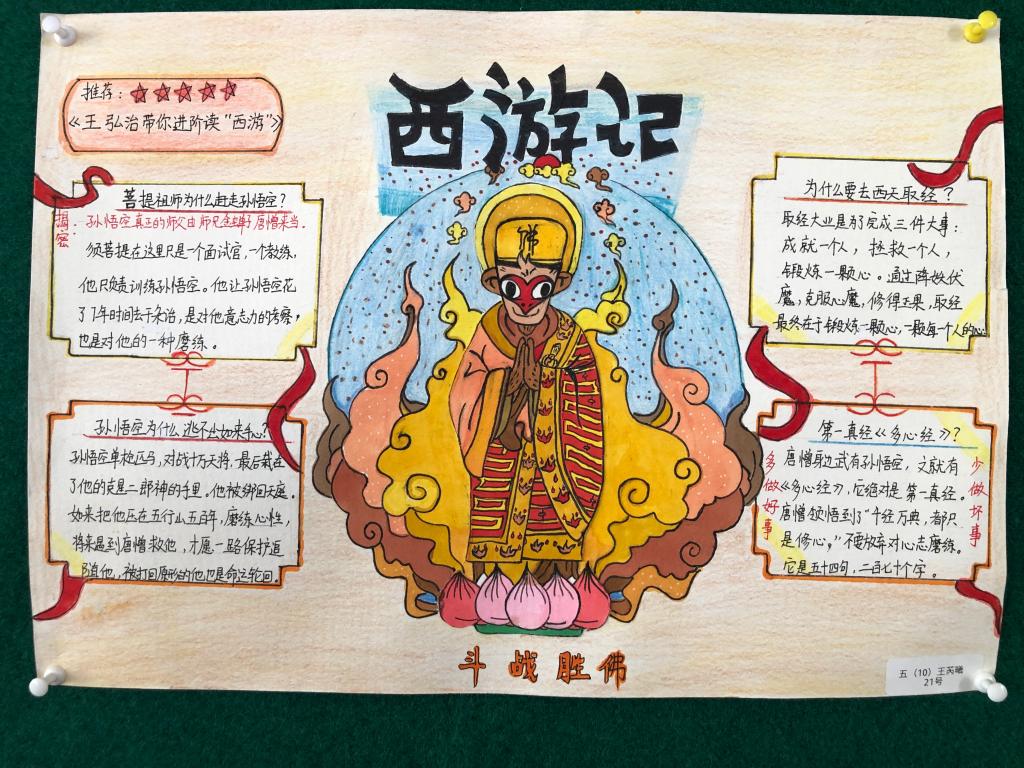 西游记
推荐：☆☆☆☆☆
《王弘治带你进阶读“西游”》
菩提祖师为什么赶走孙悟空？
揭密
孙悟空真正的师父由
唐僧来当.
须菩提在这里只是一个面试官，一个教练，
他只负责训练孙悟空。他让孙悟空花
了7年时间去干杂治，是对他意志力的考察，
也是对他的一种磨练。
孙悟空为什么逃不出如来手心？
孙悟空单枪匹马，对战十万天将，最后栽在
了他的克星二郎神的手里。他被绑回天庭。
如来把他压在五行山五百年，磨练心性，
将来遇到唐僧救他，才愿一路保护追
随他，被打回原形的他也是命运轮回。
为什么要去西天取经？
取经大业是为了完成三件大事：
成就一个人，拯救一个人，
锻炼一颗心。通过降妖伏
魔，克服心魔，修得正果，取经
最终在于锻炼一颗心，一颗每个人的心
第一真经《多心经》？
多做好事
唐僧身边武有孙悟空，文就有
《多心经》，它绝对是第一真经。
唐僧领悟到了“千经万典，都只
是修心。”不要放弃对心志磨练。
它是五十四句，二百七十个字。
少做坏事
佛
斗战胜佛
五（10）王芮曦
21号